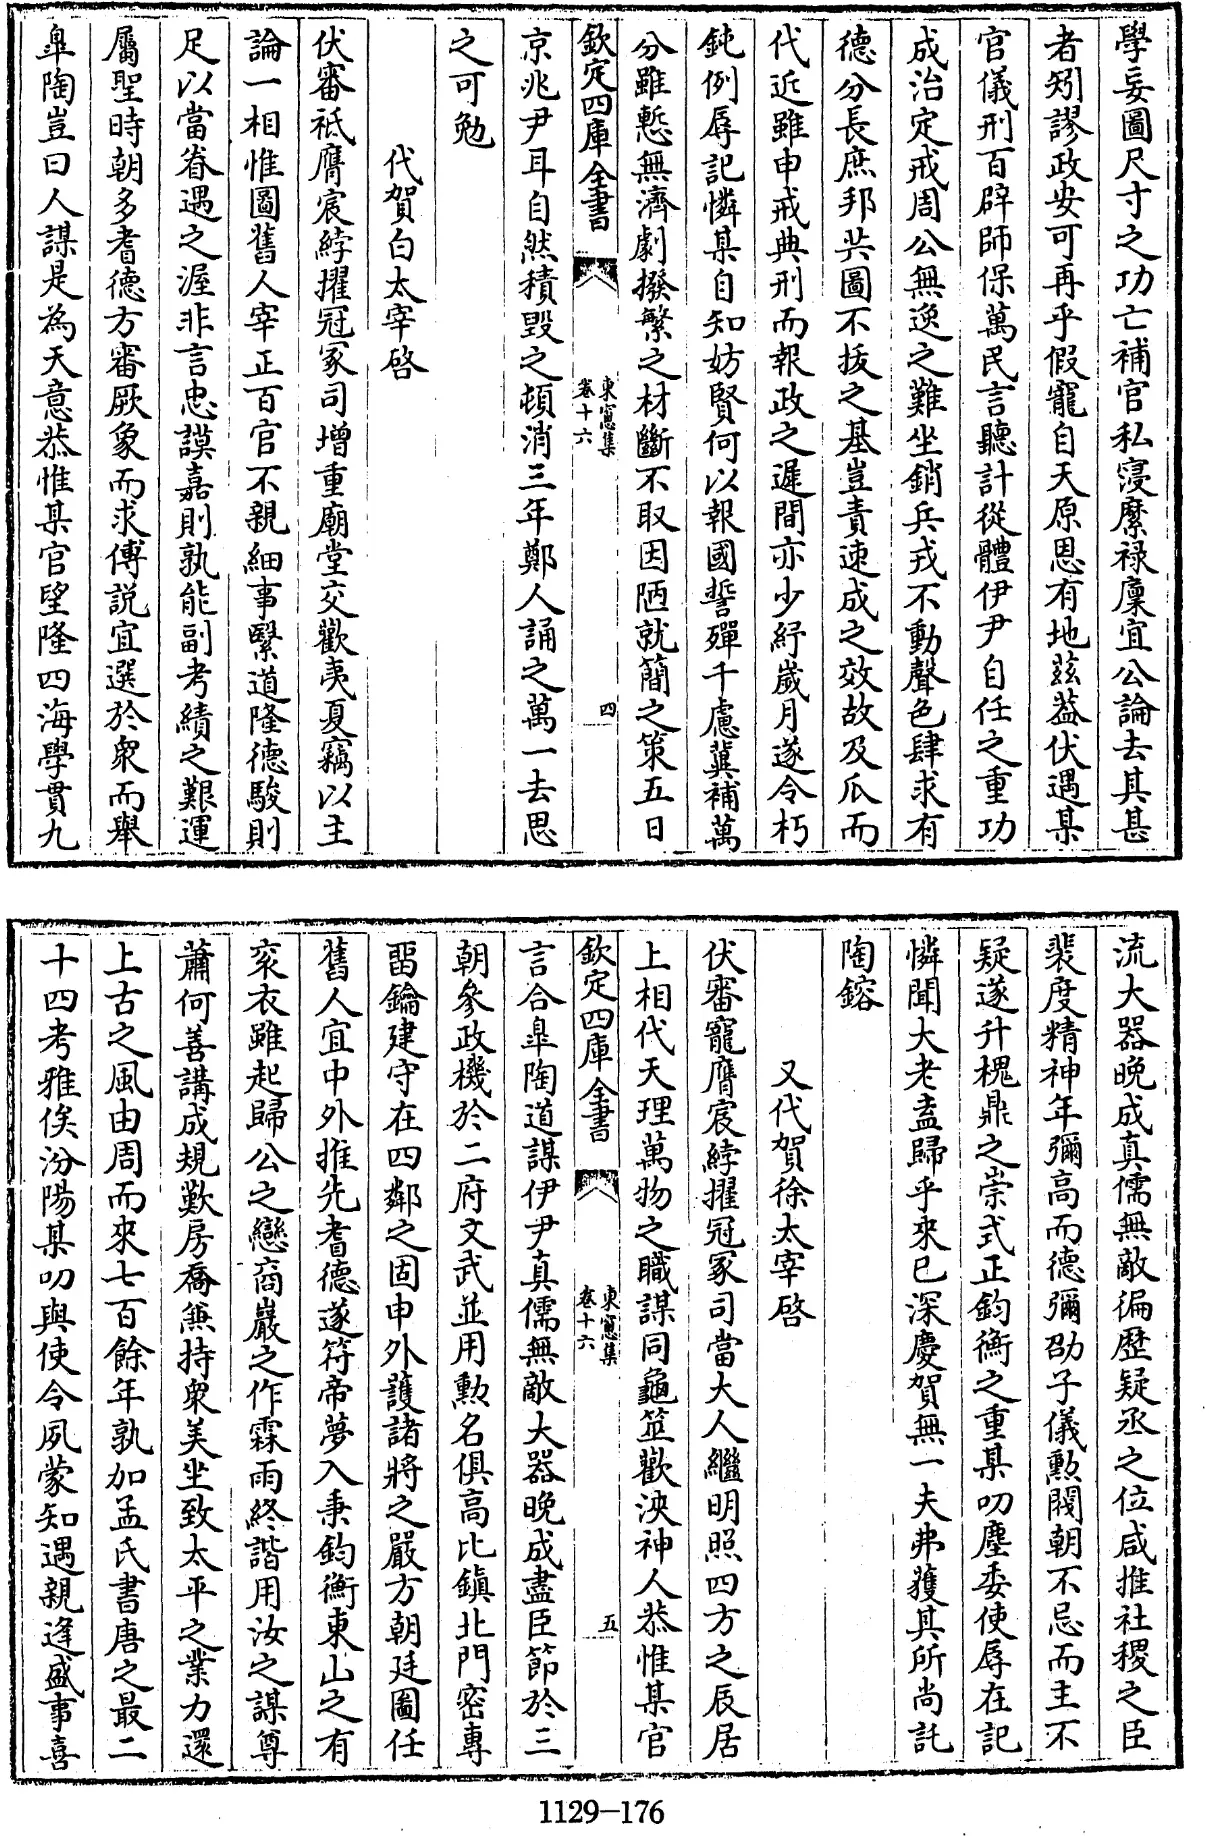 學妄圖尺寸之功亡補官私寖縻祿廩宜公論去其甚
者矧謬政安可再乎假寵自天原恩有地茲葢伏遇某
官儀刑百辟師保萬民言聽計從體伊尹自任之重功
成治定戒周公無逸之難坐銷兵戎不動聲色肆求有
德分長庶邦共圖不拔之基豈責速成之效故及瓜而
代近雖申戒典刑而報政之遲間亦少紓歲月遂令朽
鈍例辱記憐某自知妨賢何以報國誓殫千慮冀補萬
分雖慙無濟劇撥繁之材斷不取因陋就簡之策五日
欽定四庫全書
東窻集
卷十六
四
京兆尹耳自然積毀之頓消三年鄭人誦之萬一去思
之可勉
代賀白太宰啓
伏審祗膺宸綍擢冠冢司增重廟堂交歡夷夏竊以主
論一相惟圖舊人宰正百官不親細事緊道隆德駿則
足以當眷遇之渥非言忠謨嘉則孰能副考績之艱運
屬聖時朝多耆德方審厥象而求傅説宜選於衆而舉
臯陶豈曰人謀是為天意恭惟某官望隆四海學貫九
流大器晚成真儒無敵徧歴疑丞之位咸推社稷之臣
裴度精神年彌高而德彌劭子儀勲閥朝不忌而主不
疑遂升槐鼎之崇式正鈞衡之重某叨塵委使辱在記
憐聞大老盍歸乎來已深慶賀無一夫弗獲其所尚託
陶鎔
又代賀徐太宰啓
伏審寵膺宸綍擢冠冢司當大人繼明照四方之辰居
上相代天理萬物之職謀同龜筮歡浹神人恭惟某官
欽定四庫全書
東窻集
卷十六
五
言合臯陶道謀伊尹真儒無敵大器晚成盡臣節於三
朝參政機於二府文武並用勲名俱高比鎮北門密專
留鑰建守在四鄰之固申外護諸將之嚴方朝廷圖任
舊人宜中外推先耆德遂符帝夢入秉鈞衡東山之有
衮衣雖起歸公之戀商巖之作霖雨終諧用汝之謀尊
蕭何善講成規歎房喬兼持衆美坐致太平之業力還
上古之風由周而來七百餘年孰加孟氏書唐之最二
十四考雅俟汾陽某叨與使令夙蒙知遇親逢盛事喜
1129-176